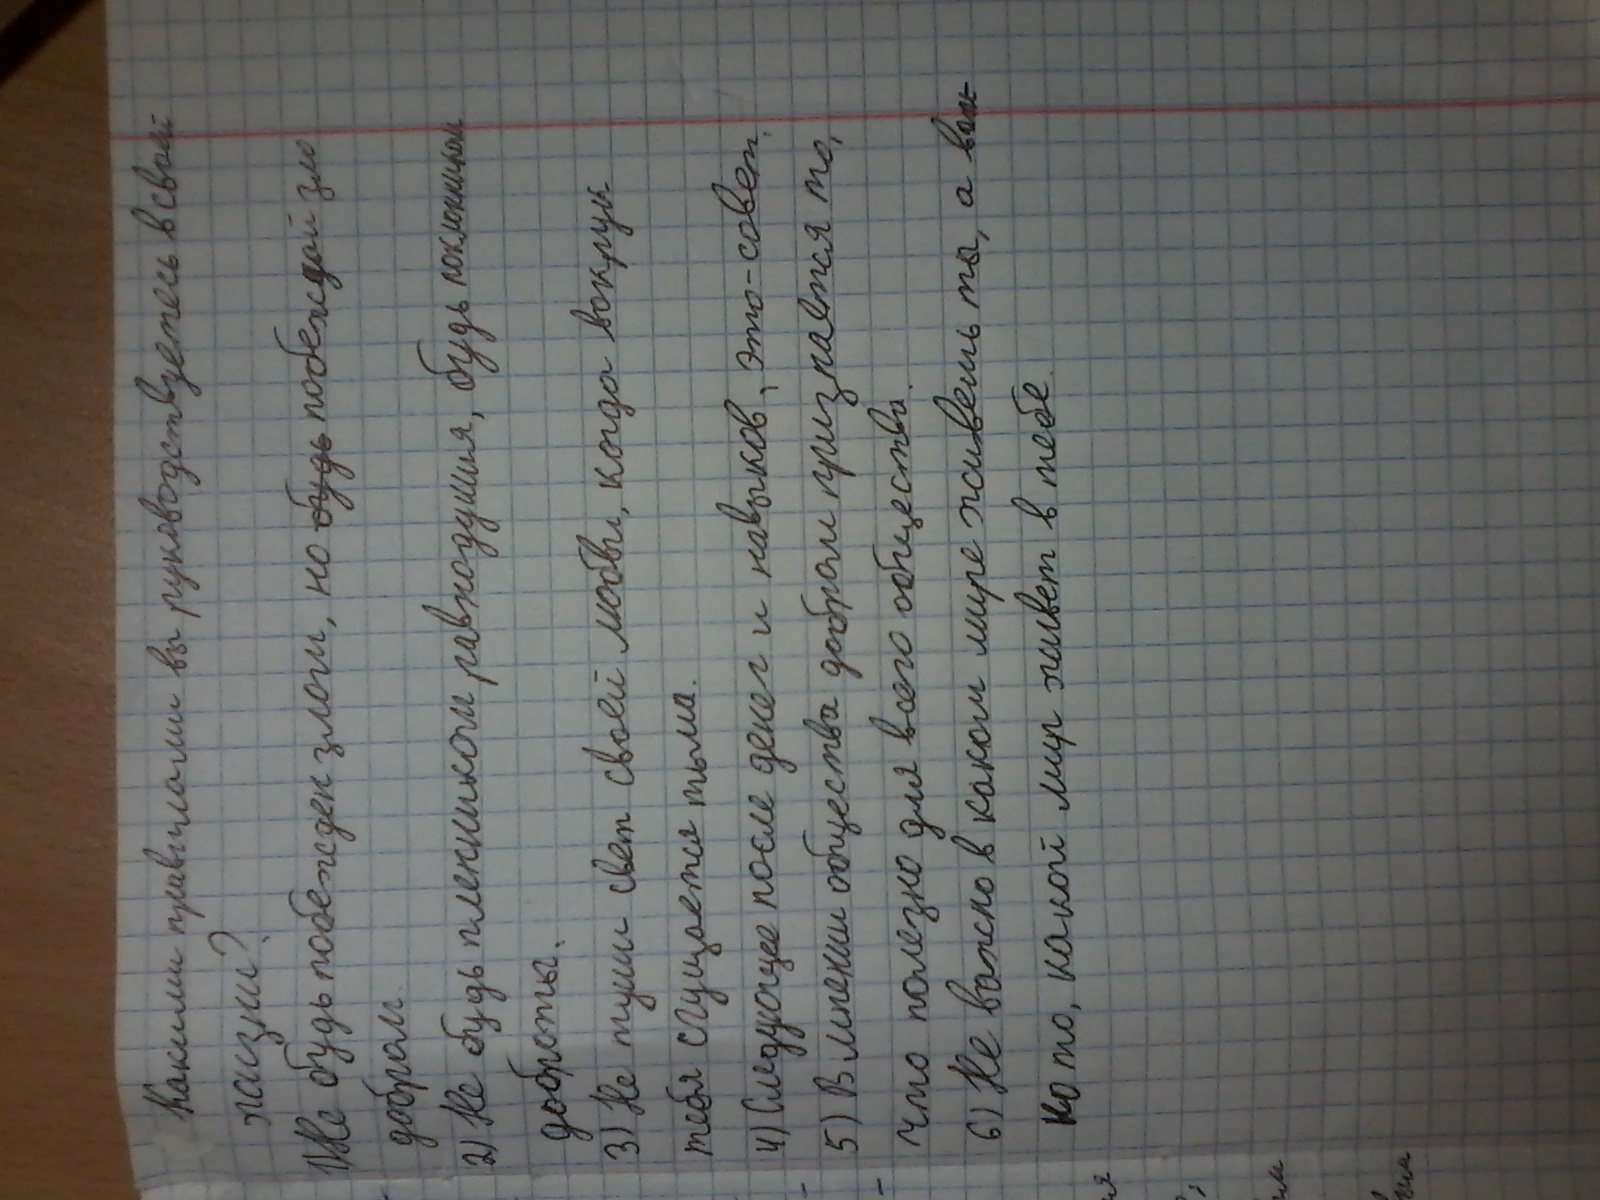 Какими привычками вы руководствуетесь в свой
жизни?
1) Не будь побежден злом, но будь побеждай зло
добром.
2) Не будь пленником равнодушия, будь поклонником
доброты.
3) Не туши свет своей любви, когда вокруг
тебя сгущается тьма.
4) Следующее после денег и навыков, это-совет.
5) В мнении общества добром признается то,
что полезно для всего общества.
6) Не важно в каком мире живешь ты, а важ-
но то, какой мир живет в тебе.